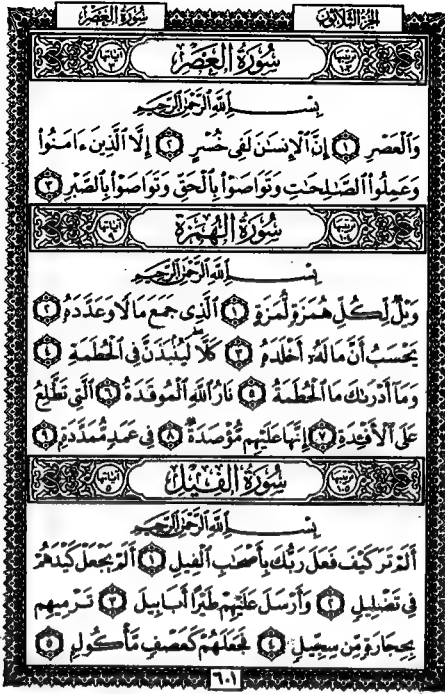 سُورَةُ العَصْرِ الجُزْءُ الثَّلَاثُونَ
سُورَةُ العَصْرِ
بِسْمِ اللَّهِ الرَّحْمَٰنِ الرَّحِيمِ
وَالْعَصْرِ ١ إِنَّ الْإِنسَٰنَ لَفِى خُسْرٍ ٢ إِلَّا الَّذِينَ ءَامَنُوا۟
وَعَمِلُوا۟ الصَّٰلِحَٰتِ وَتَوَاصَوْا۟ بِالْحَقِّ وَتَوَاصَوْا۟ بِالصَّبْرِ ٣
سُورَةُ الهُمَزَةِ
بِسْمِ اللَّهِ الرَّحْمَٰنِ الرَّحِيمِ
وَيْلٌ لِّكُلِّ هُمَزَةٍ لُّمَزَةٍ ١ الَّذِى جَمَعَ مَالًا وَعَدَّدَهُۥ ٢
يَحْسَبُ أَنَّ مَالَهُۥٓ أَخْلَدَهُۥ ٣ كَلَّا ۖ لَيُنۢبَذَنَّ فِى الْحُطَمَةِ ٤
وَمَآ أَدْرَىٰكَ مَا الْحُطَمَةُ ٥ نَارُ اللَّهِ الْمُوقَدَةُ ٦ الَّتِى تَطَّلِعُ
عَلَى الْأَفْـِٔدَةِ ٧ إِنَّهَا عَلَيْهِم مُّؤْصَدَةٌ ٨ فِى عَمَدٍ مُّمَدَّدَةٍۭ ٩
سُورَةُ الفِيلِ
بِسْمِ اللَّهِ الرَّحْمَٰنِ الرَّحِيمِ
أَلَمْ تَرَ كَيْفَ فَعَلَ رَبُّكَ بِأَصْحَٰبِ الْفِيلِ ١ أَلَمْ يَجْعَلْ كَيْدَهُمْ
فِى تَضْلِيلٍ ٢ وَأَرْسَلَ عَلَيْهِمْ طَيْرًا أَبَابِيلَ ٣ تَرْمِيهِم
بِحِجَارَةٍ مِّن سِجِّيلٍ ٤ فَجَعَلَهُمْ كَعَصْفٍ مَّأْكُولٍۭ ٥
٦٠١